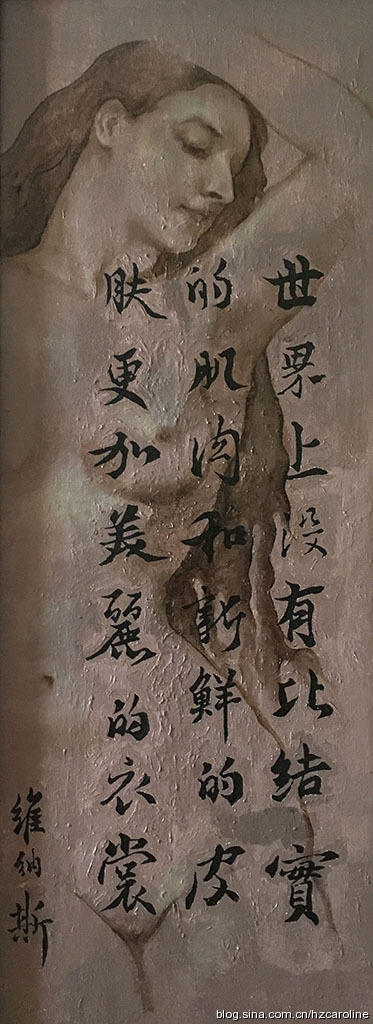 世界上没有比结實
的肌肉和新鮮的皮
肤更加美麗的衣裳
維纳斯
blog.sina.com.cn/hzcaroline